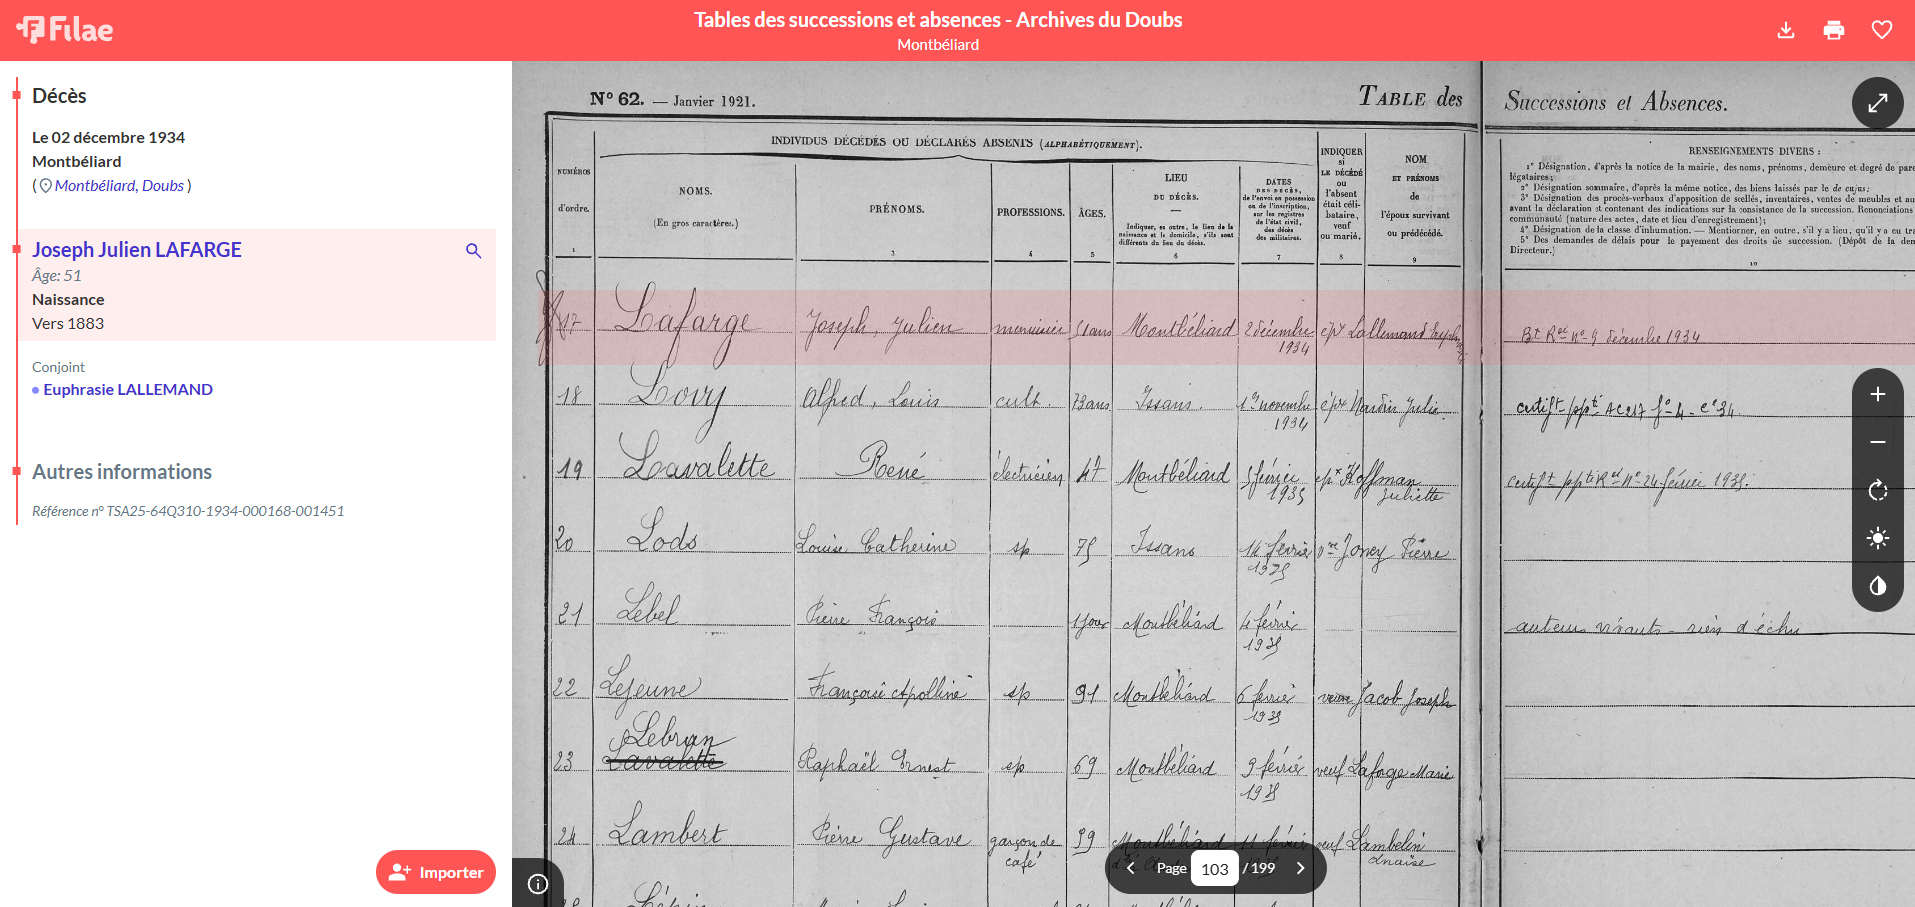 Filae
Tables des successions et absences - Archives du Doubs
Montbéliard
Décès
Le 02 décembre 1934
Montbéliard
( Montbéliard, Doubs )
Joseph Julien LAFARGE
Âge: 51
Naissance
Vers 1883
Conjoint
Euphrasie LALLEMAND
Autres informations
Référence n° TSA25-64Q310-1934-000168-001451
Importer
N° 62. — Janvier 1921.
TABLE des Successions et Absences.
INDIVIDUS DÉCÉDÉS OU DÉCLARÉS ABSENTS (ALPHABÉTIQUEMENT).
NUMÉROS
d'ordre.
1
NOMS.
(En gros caractères.)
PRÉNOMS.
3
PROFESSIONS.
4
ÂGES.
5
LIEU
DU DÉCÈS.
—
Indiquer, en outre, le lieu de la
naissance et le domicile, s'ils sont
différents du lieu du décès.
6
DATES
DES DÉCÈS,
de l'envoi en possession
ou de l'inscription,
sur les registres
de l'état civil,
des décès
des militaires.
7
INDIQUER
si
LE DÉCÉDÉ
ou
l'absent
était céli-
bataire,
veuf
ou marié.
8
NOM
ET PRÉNOMS
de
l'époux survivant
ou prédécédé.
9
RENSEIGNEMENTS DIVERS :
1° Désignation, d'après la notice de la mairie, des noms, prénoms, demeure et degré de pare
légataires;
2° Désignation sommaire, d'après la même notice, des biens laissés par le de cujus;
3° Désignation des procès-verbaux d'apposition de scellés, inventaires, ventes de meubles et au
avant la déclaration et contenant des indications sur la consistance de la succession. Renonciations
communauté (nature des actes, date et lieu d'enregistrement);
4° Désignation de la classe d'inhumation. — Mentionner, en outre, s'il y a lieu, qu'il y a eu tra
5° Des demandes de délais pour le payement des droits de succession. (Dépôt de la dem
Directeur.)
10
17 Lafarge Joseph, Julien menuisier 51 ans Montbéliard 2 décembre 1934 épx Lallemand
Bt Rel n° 9 décembre 1934
18 Lovy Alfred, Louis cult. 73 ans Issans. 1er novembre 1934 épx Nardin Julie
certift ppté AC217 f° 4 - Ce 34
19 Lavalette René électricien 47 Montbéliard 5 février 1935 épx Hoffman Juliette
certift ppté Rel N° 24 février 1935.
20 Lods Louise Catherine sp 75 Issans 14 février 1935 Pierre
21 Lebel Pierre François 1 jour Montbéliard 4 février 1935
auteurs vivants - rien d'échu
22 Lejeune Françoise Apolline sp 91 Montbéliard 6 février 1935 veuve Jacob Joseph
23 Lebrun Lavalette Raphaël Ernest sp 69 Montbéliard 9 février 1935 veuf Lafoge Marie
24 Lambert Pierre Gustave garçon de café 59 Montbéliard 11 février veuf Lambelin
Page 103 / 199